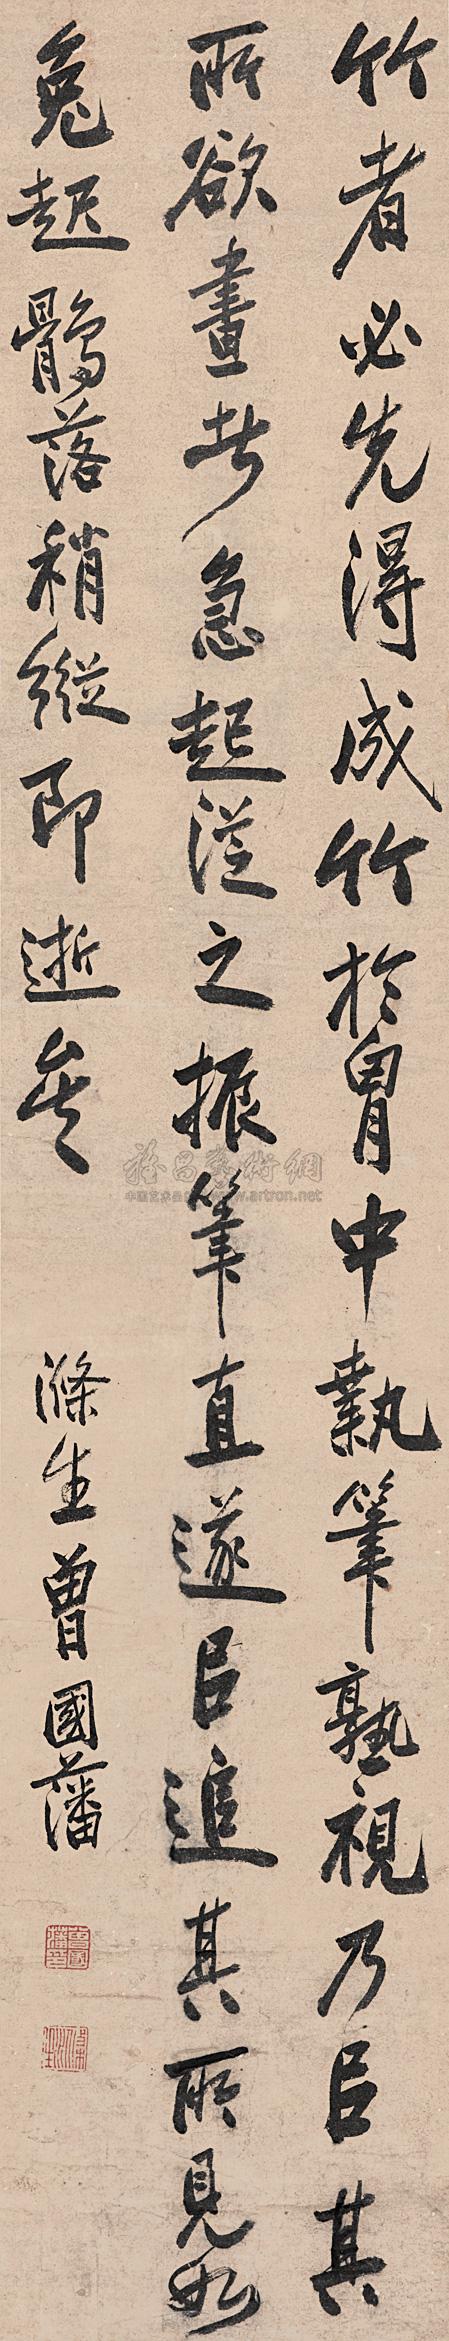 竹者必先得成竹於胷中執筆熟視乃㠯其
所欲畫者急起從之振筆直遂㠯追其所見如
兔起鶻落稍縱即逝矣
滌生曾國藩
曾國藩印
滌生
雅昌艺术網
www.artron.net